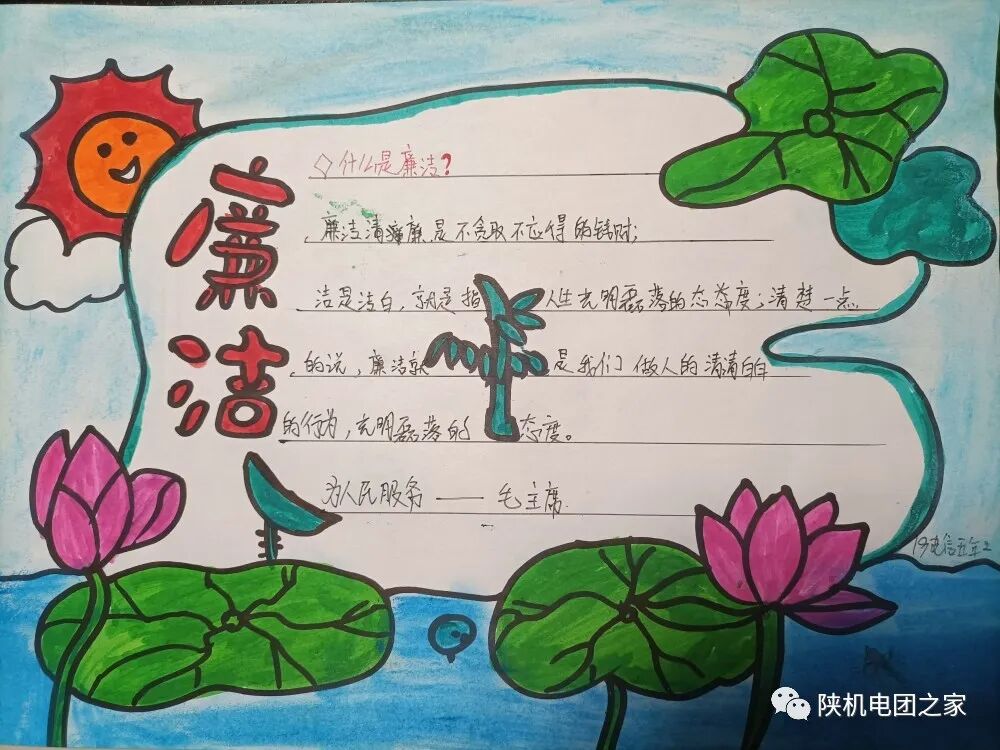 廉洁
◇什么是廉洁?
廉洁清廉是不贪取不应得的钱财;
洁是洁白,就是指人生光明磊落的态态度;清楚一点
的说,廉洁就是我们做人的清清白白
的行为,光明磊落的态度。
为人民服务 —— 毛主席.
19电信五年2
陕机电团之家